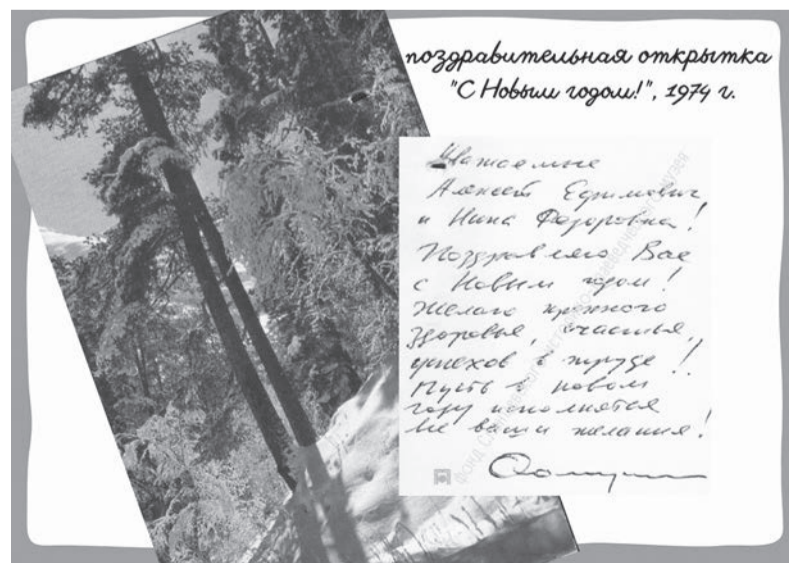 поздравительная открытка
"С Новым годом!", 1974 г.
Уважаемые
Алексей Ефимович
и Нина Федоровна!
Поздравляю Вас
с Новым годом!
Желаю крепкого
здоровья, счастья,
успехов в труде!
Пусть в новом
году исполнятся
все ваши желания!